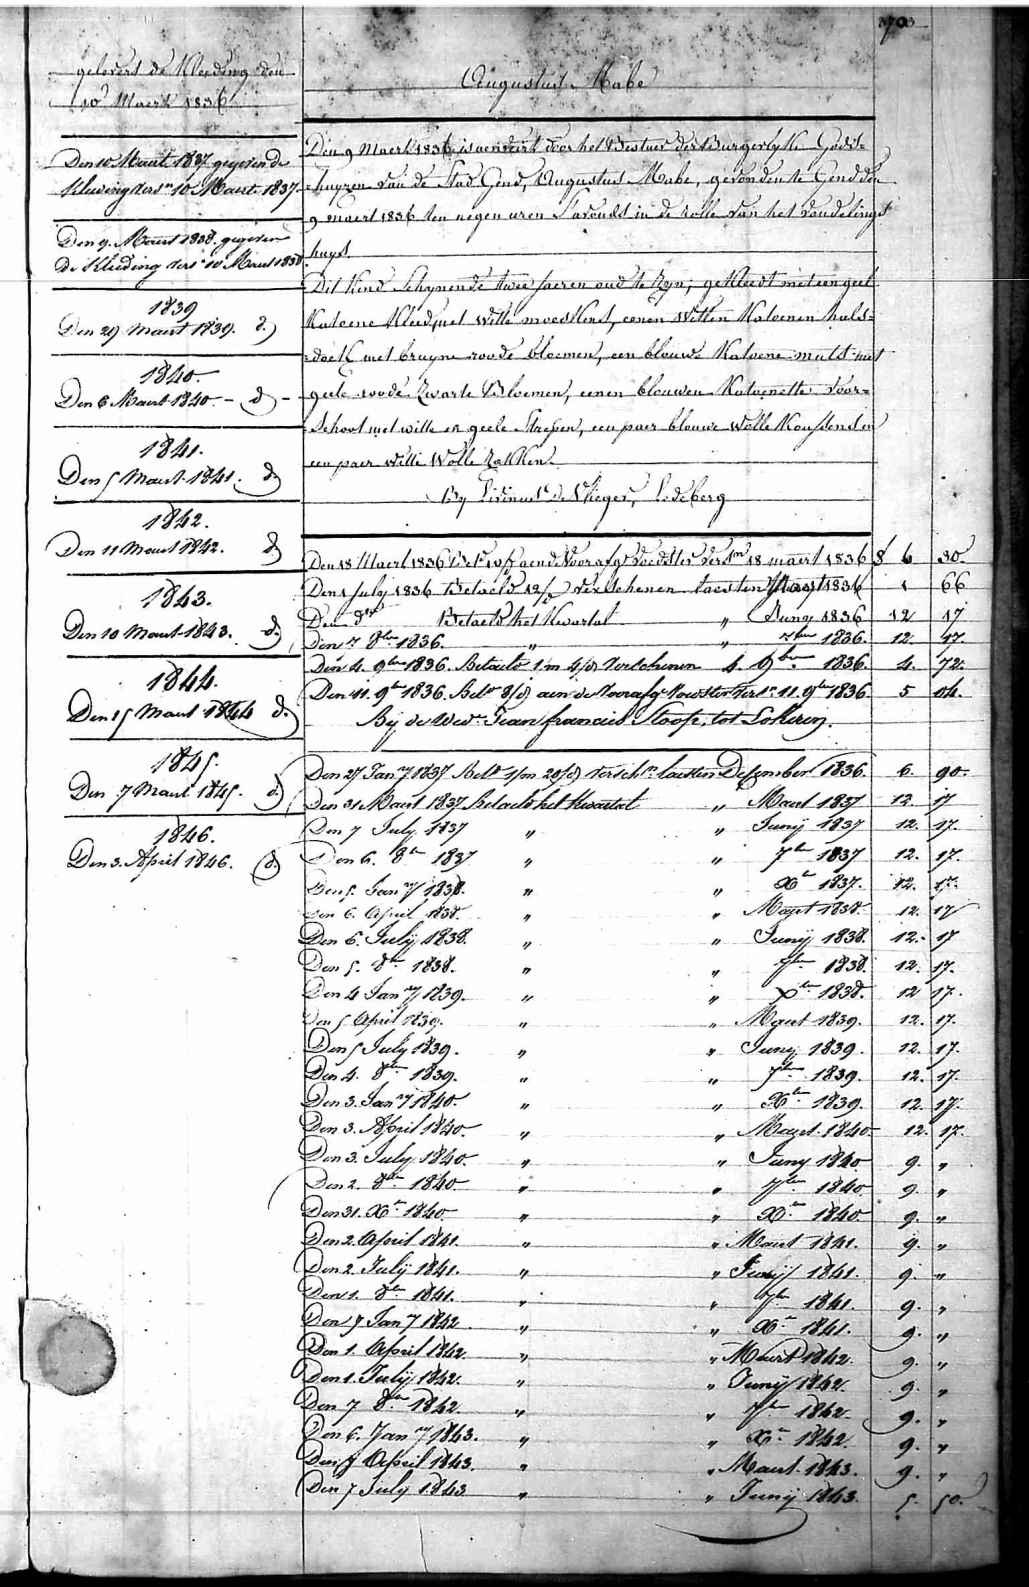 gelevert de Kleeding den
10 Maert 1836
Den 10 Maart 1837 gegeven de
Kleeding vers.n 10 Maart 1837
Den 9. Maart 1838. gegeven
De Kleeding vers.n 10 Maart 1838
1839
Den 29 Maart 1839. d.)
1840.
Den 6 Maart 1840. - d) -
1841.
Den 5 Maart 1841. d.)
1842.
Den 11 Maart 1842. d)
1843.
Den 10 Maart 1843. d.)
1844.
Den 15 Maart 1844 d.)
1845.
Den 7 Maart 1845. d.)
1846.
Den 3. April 1846. (d.)
Augustus Mabe
Den 9 Maert 1836 is aenveirt door het Bestuer der Burgerlyke Godts=
=huyzen van de Stad Gend, Augustus Mabe, gevonden te Gend den
9 maert 1836 ten negen uren s'avonds in de rolle van het vondelings
huys.
Dit Kind Schynende twee jaeren oud te zyn; gekleedt met een geel
Katoene Kleed, met witte, eenen Witten Katoenen hals=
=doek met bruyne roode bloemen, een blouwe Katoene muts met
geele roode Zwarte Bloemen, eenen blouwen Katoenette voor=
=schoot met witte en geele Strepen, een paer blouwe Wolle Koussens en
een paer witte Wolle Zokken.
By Livinus de Vlieger, Ledeberg
Den 18 Maert 1836 aen de Voorafg. Voedster vers.n 18 maert 1836 f 6 30.
Den 1 July 1836 Betaeld 12/ verschenen laesten Maert 1836 1 66
Den d.o Betaeld het Kwartal " Juny 1836 12 17
Den 7 8ber 1836. " " 7ber 1836. 12. 17.
Den 4. 9ber 1836. Betaeld 1/m 4/d verschenen 4. 9ber 1836. 4. 72.
Den 11. 9ber 1836. Bet.d 8/d aen de Voorafg. Voedster vers.n 11. 9ber 1836. 5 04.
Bij de Wed.e Jean francois Stoop, tot Lokeren.
Den 27 Jan.ry 1837 Bet.d 1/m 20/d versch.n laetsten December 1836. 6. 90.
Den 31 Maart 1837 Betaeld het Kwartal " Maart 1837 12. 17
Den 7 July 1837 " " Junij 1837 12. 17.
Den 6. 8ber 1837 " " 7ber 1837 12. 17.
Den 5. Jan.ry 1838. " " Xber 1837. 12. 17.
Den 6. April 1838. " " Maart 1838. 12. 17
Den 6. July 1838. " " Junij 1838. 12. 17
Den 5. 8ber 1838. " " 7ber 1838. 12. 17.
Den 4 Jan.ry 1839. " " Xber 1838. 12 17.
Den 5 April 1839. " " Maart 1839. 12. 17.
Den 5 July 1839. " " Junij 1839. 12. 17.
Den 4. 8ber 1839. " " 7ber 1839. 12. 17.
Den 3. Jan.ry 1840. " " Xber 1839. 12. 17.
Den 3. April 1840. " " Maart 1840. 12. 17.
Den 3. July 1840. " " Juny 1840 9. "
Den 2. 8ber 1840 " " 7ber 1840 9. "
Den 31. Xber 1840. " " Xber 1840. 9. "
Den 2. April 1841. " " Maart 1841. 9. "
Den 2. July 1841. " " Junij 1841. 9. "
Den 1. 8ber 1841. " " 7ber 1841. 9. "
Den 7 Jan.ry 1842 " " Xber 1841. 9. "
Den 1. April 1842. " " Maart 1842. 9. "
Den 1. July 1842. " " Junij 1842. 9. "
Den 7 8ber 1842. " " 7ber 1842. 9. "
Den 6. Jan.ry 1843. " " Xber 1842. 9. "
Den 7 April 1843. " " Maart 1843. 9. "
Den 7 July 1843 " " Junij 1843. 5. 50.